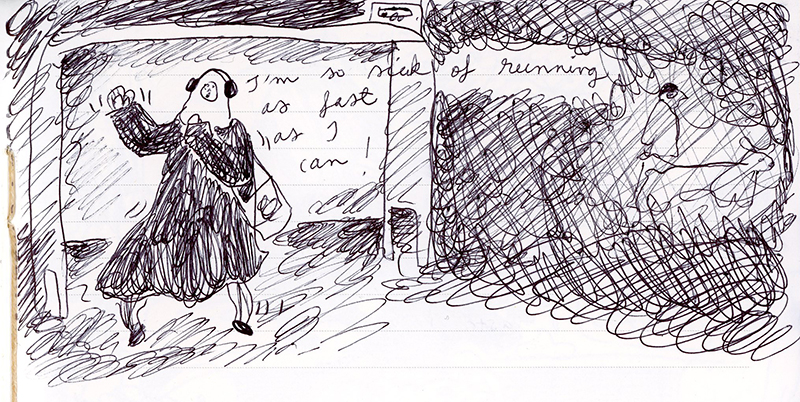 I'm so sick of running
as fast
as I
can!